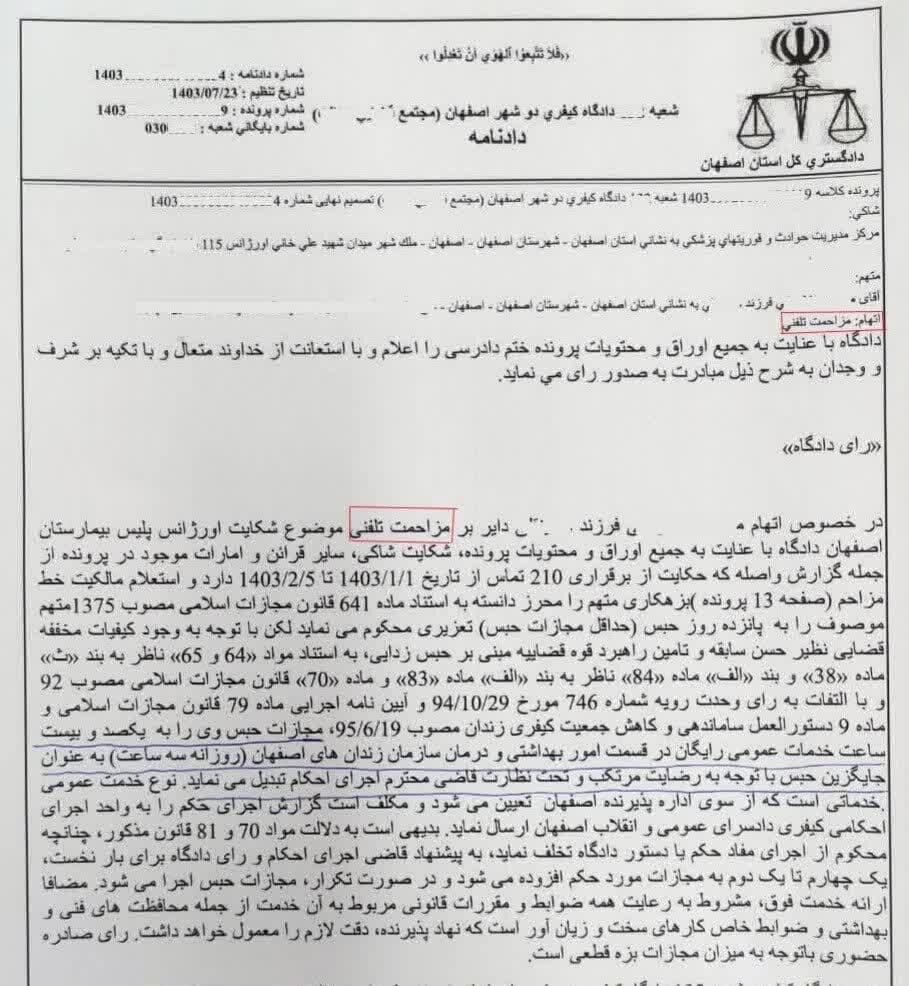 «فَلا تَتَّبِعُوا الْهَوي أَنْ تَعْدِلُوا»
شماره دادنامه : 4 1403
تاریخ تنظیم : 1403/07/23
شماره پرونده : 9 1403
شماره بایگاني شعبه : 030
شعبه دادگاه کیفري دو شهر اصفهان (مجتمع )
دادنامه
دادگستري کل استان اصفهان
پرونده کلاسه 9 1403 شعبه دادگاه کیفري دو شهر اصفهان (مجتمع ) تصمیم نهایی شماره 4 1403
شاکي:
مرکز مدیریت حوادث و فوریتهاي پزشکي به نشاني استان اصفهان - شهرستان اصفهان - اصفهان - ملك شهر میدان شهید علي خاني اورژانس 115
متهم:
آقای فرزند به نشاني استان اصفهان - شهرستان اصفهان - اصفهان -
اتهام: مزاحمت تلفني
دادگاه با عنایت به جمیع اوراق و محتویات پرونده ختم دادرسی را اعلام و با استعانت از خداوند متعال و با تکیه بر شرف
و وجدان به شرح ذیل مبادرت به صدور رای مي نماید.
«رای دادگاه»
در خصوص اتهام فرزند دایر بر مزاحمت تلفنی موضوع شکایت اورژانس پلیس بیمارستان
اصفهان دادگاه با عنایت به جمیع اوراق و محتویات پرونده، شکایت شاکی، سایر قرائن و امارات موجود در پرونده از
جمله گزارش واصله که حکایت از برقراری 210 تماس از تاریخ 1403/1/1 تا 1403/2/5 دارد و استعلام مالکیت خط
مزاحم (صفحه 13 پرونده )بزهکاری متهم را محرز دانسته به استناد ماده 641 قانون مجازات اسلامی مصوب 1375متهم
موصوف را به پانزده روز حبس (حداقل مجازات حبس) تعزیری محکوم می نماید لکن با توجه به وجود کیفیات مخففه
قضایی نظیر حسن سابقه و تامین راهبرد قوه قضاییه مبنی بر حبس زدایی، به استناد مواد «64 و 65» ناظر به بند «ث»
ماده «38» و بند «الف» ماده «84» ناظر به بند «الف» ماده «83» و ماده «70» قانون مجازات اسلامی مصوب 92
و با التفات به رای وحدت رویه شماره 746 مورخ 94/10/29 و آیین نامه اجرایی ماده 79 قانون مجازات اسلامی و
ماده 9 دستورالعمل ساماندهی و کاهش جمعیت کیفری زندان مصوب 95/6/19، مجازات حبس وی را به یکصد و بیست
ساعت خدمات عمومی رایگان در قسمت امور بهداشتی و درمان سازمان زندان های اصفهان (روزانه سه ساعت) به عنوان
جایگزین حبس با توجه به رضایت مرتکب و تحت نظارت قاضی محترم اجرای احکام تبدیل می نماید. نوع خدمت عمومی
.خدماتی است که از سوی اداره پذیرنده اصفهان تعیین می شود و مکلف است گزارش اجرای حکم را به واحد اجرای
احکامی کیفری دادسرای عمومی و انقلاب اصفهان ارسال نماید. بدیهی است به دلالت مواد 70 و 81 قانون مذکور، چنانچه
محکوم از اجرای مفاد حکم یا دستور دادگاه تخلف نماید، به پیشنهاد قاضی اجرای احکام و رای دادگاه برای بار نخست،
یک چهارم تا یک دوم به مجازات مورد حکم افزوده می شود و در صورت تکرار، مجازات حبس اجرا می شود. مضافا
ارائه خدمت فوق، مشروط به رعایت همه ضوابط و مقررات قانونی مربوط به آن خدمت از جمله محافظت های فنی و
بهداشتی و ضوابط خاص کارهای سخت و زیان آور است که نهاد پذیرنده، دقت لازم را معمول خواهد داشت. رای صادره
حضوری باتوجه به میزان مجازات بزه قطعی است.